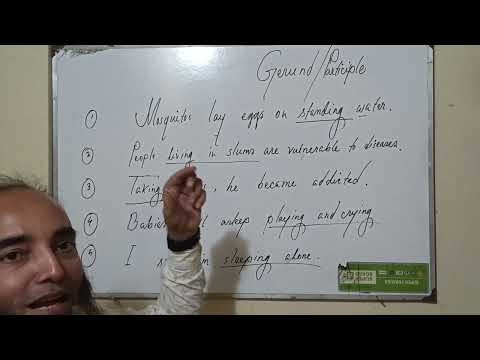 Gerund/Participle
① Mosquitos lay eggs on standing water.
② People living in slums are vulnerable to diseases.
③ Taking , he became addicted.
④ Babies asleep playing and crying
⑤ I sleeping alone.